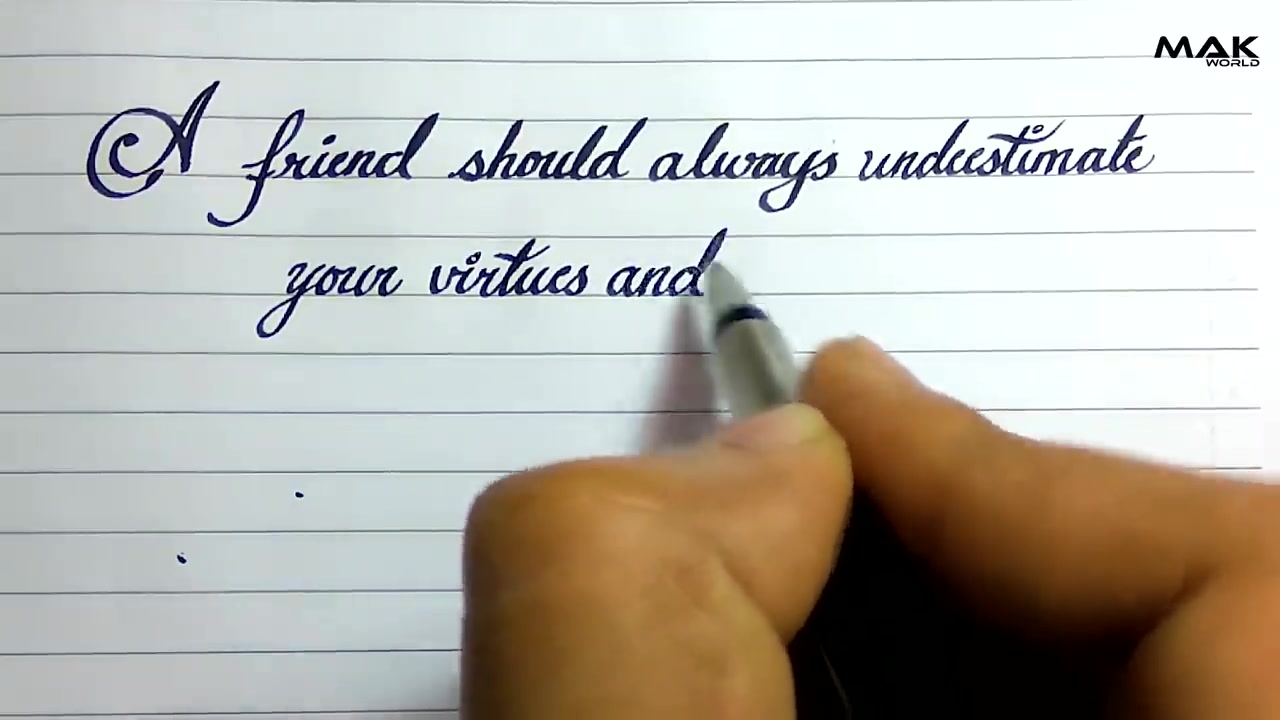 MAK
WORLD
A friend should always undeestimate
your virtues and